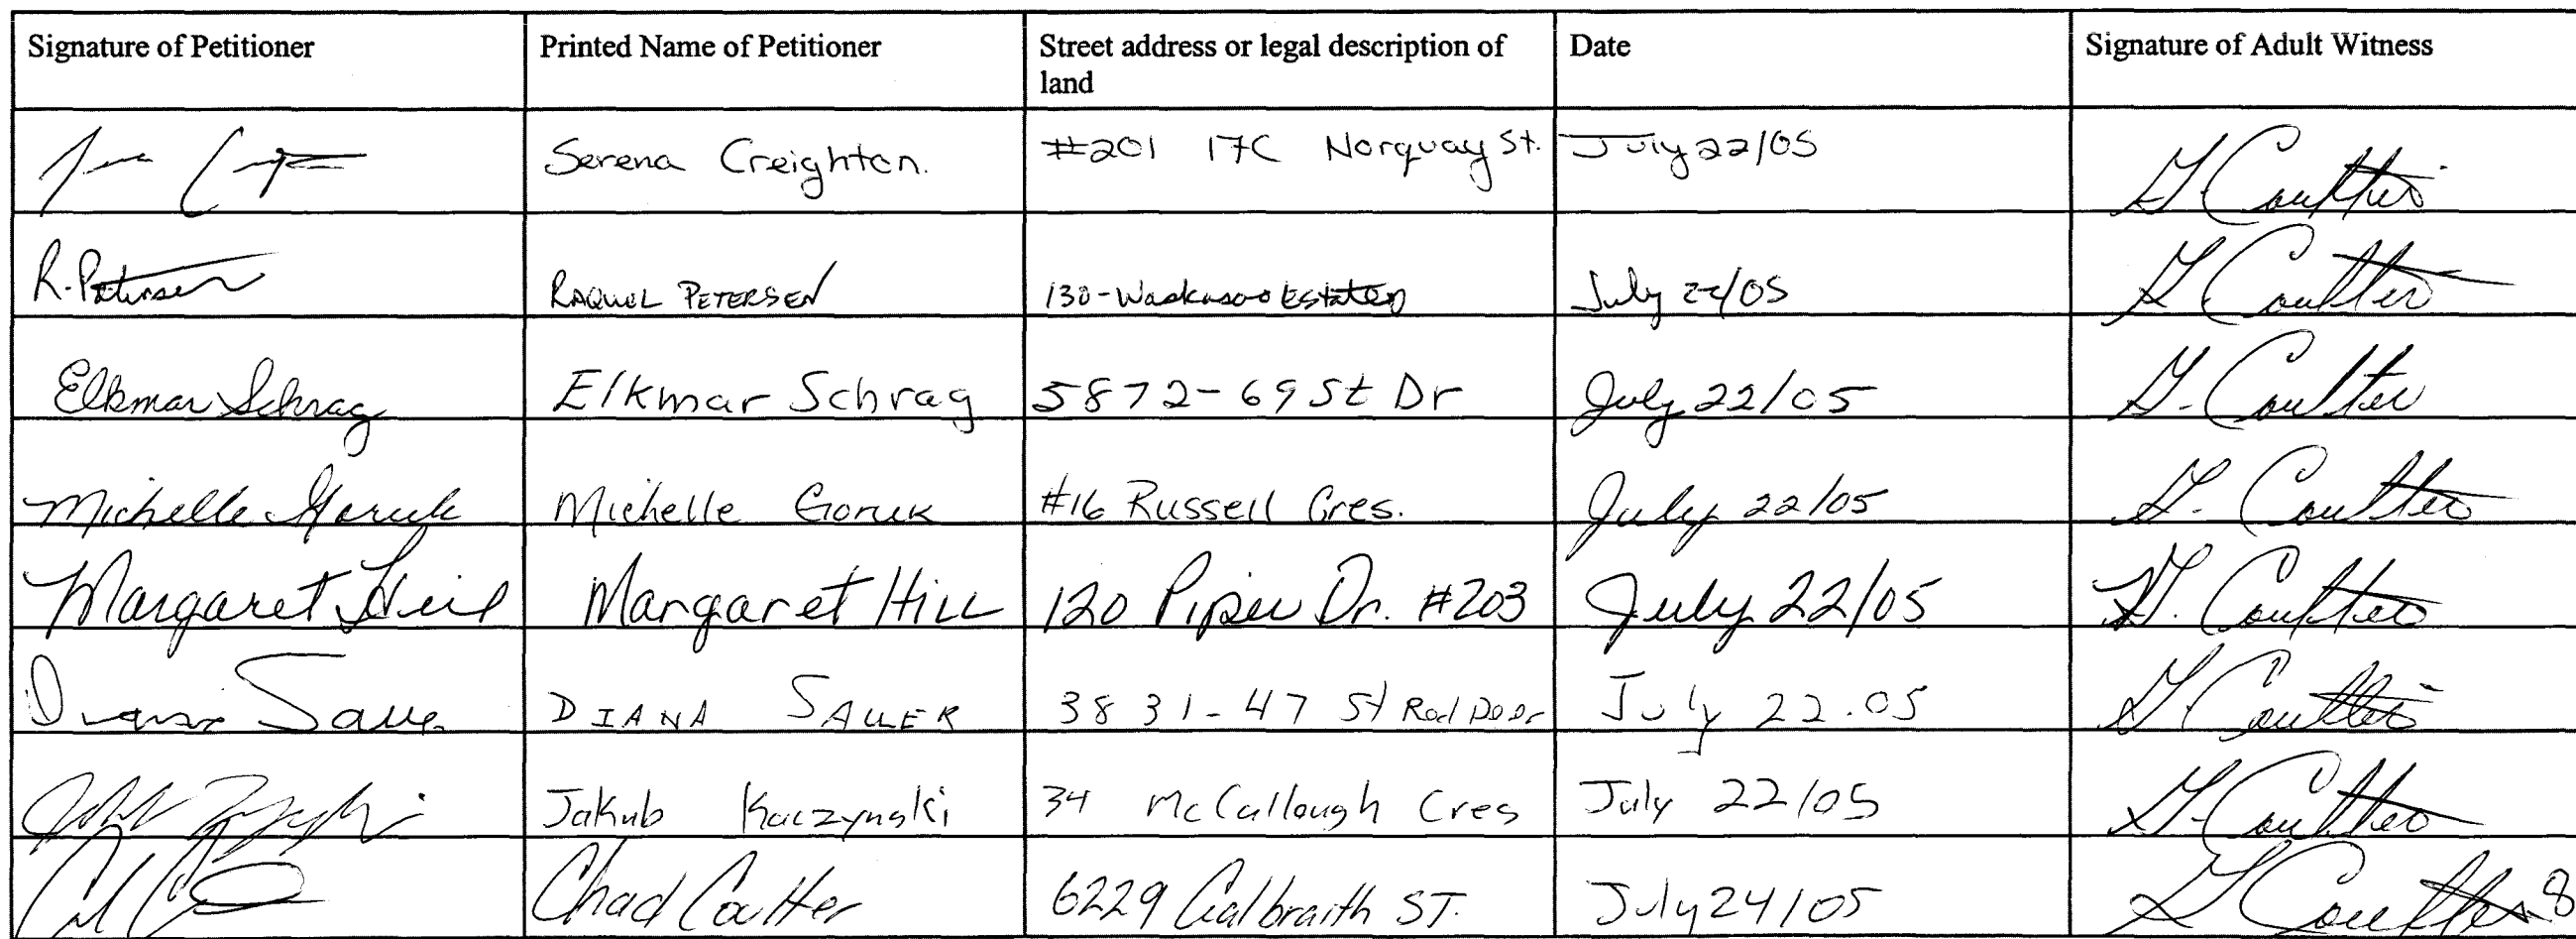 Signature of Petitioner Printed Name of Petitioner Street address or legal description of land Date Signature of Adult Witness
Serena Creighton. #201 17C Norquay St. July 22/05 G. Coulter
R. Petersen RAQUEL PETERSEN 130-Waskasoo Estates July 22/05 G. Coulter
Elkmar Schrag Elkmar Schrag 5872-69 St Dr July 22/05 G. Coulter
Michelle Goruk Michelle Goruk #16 Russell Cres. July 22/05 G. Coulter
Margaret Hill Margaret Hill 120 Piper Dr. #203 July 22/05 G. Coulter
Diana Sauer DIANA SAUER 3831-47 St Red Deer July 22.05 G. Coulter
Jakub Kaczynski 34 McCallough Cres July 22/05 G. Coulter
Chad Coulter 6229 Galbraith ST. July 24/05 G. Coulter 8